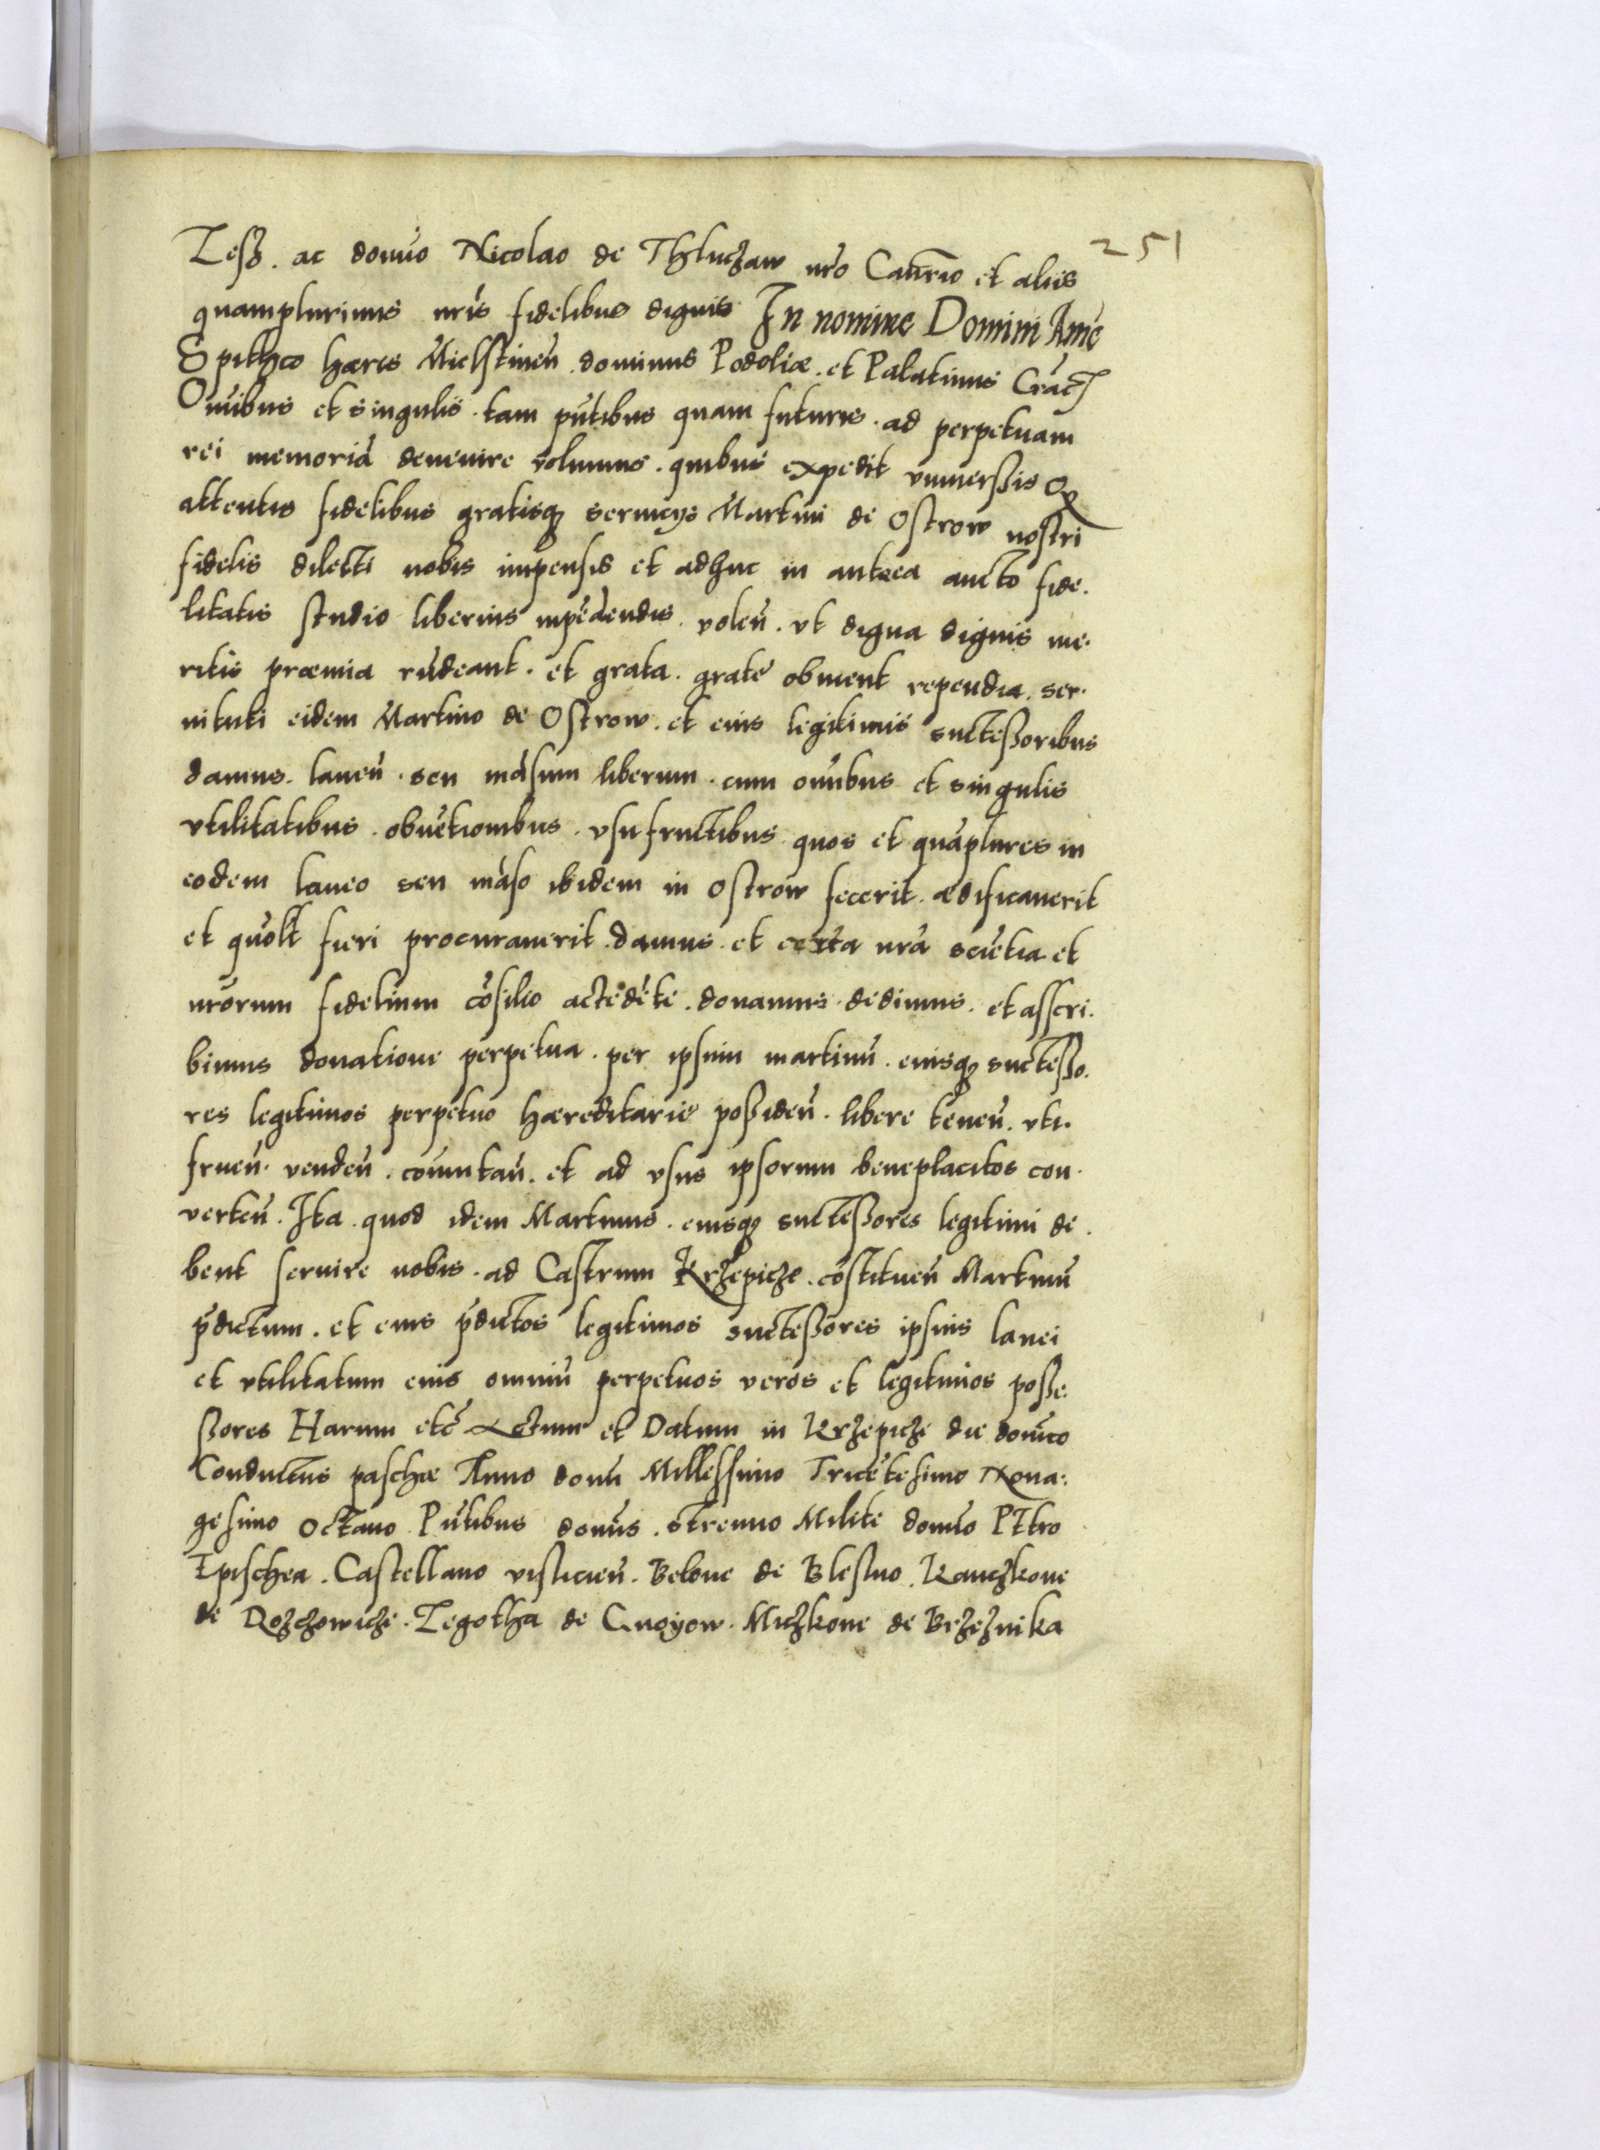 251
Leß. ac domno Nicolao de Thluczaw nr̃o Canr̃io et alijs
quampluriuis nr̃is fidelibus dignis In nomine Domini Ame
Spithco hæres Mielstineñ. dominus Podoliæ. et Palatinus Crac̃
Om̃ibus et singulis. tam pñtibus quam futuris. ad perpetuam
rei memoriã devenire volumus. quibus expedit vniuerßis Q
attentis fidelibus gratisq; seruicijs Martini de Ostrow nostri
fidelis dilecti nobis impensis et adhuc in antea aucto fide.
litatis studio liberius inpẽdendis. voleñ. vt digna dignis me.
ritis præmia rñdeant. et grata. grate obuient rependia. ser.
uituti eidem Martino de Ostrow. et eius legitimis succeßoribus
damus. laneũ. seu mãsum liberum. cum om̃ibus et singulis
vtilitatibus. obuẽtionibus. vsufructibus quos et quãplures in
eodem laneo seu mãso ibidem in Ostrow fecerit. ædificauerit
et quõlt fieri procurauerit. damus. et certa nr̃a sciẽtia. et
nr̃orum fidelium cõsilio accedẽte. donamus. dedimus. et asscri.
bimus donatione perpetua. per ipsum martinũ. eiusq; succeßo.
res legitimos perpetuo hæreditarie poßideñ. libere teneñ. vti.
frueñ. vendeñ. com̃utañ. et ad vsus ipsorum beneplacitos con.
verteñ. Ita. quod idem Martinus. eiusq; succeßores legitimi de.
bent seruire nobis. ad Castrum Krzepicze. cõstitueñ Martinũ
p̃dictum. et eius p̃dictos legitimos succeßores ipsius lanei
et vtilitatum eius omniũ perpetuos veros et legitimos poße.
ßores Harum etc̃ Actum et Datum in Krzepicze die dom̃ico
Conductus paschæ Anno domi Millessimo Tricẽtesimo Nona.
gesimo octauo Pñtibus domis. strenuo Milite domno Petro
Epischea. Castellano visliciceñ. Belone de Blesno. Kanczkone
de Rozchowicze. Legotha de Gnoyow. Miczkone de Brzeznika